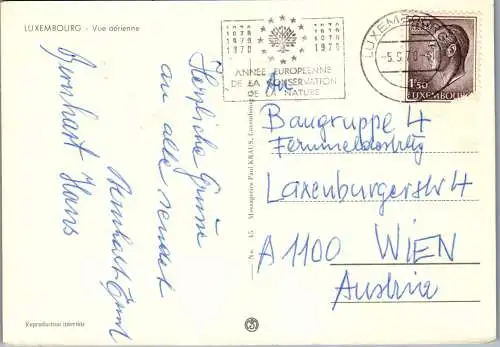 LUXEMBOURG - Vue aérienne
Herzliche Grüsse
an alle sendet
Bernhart
Bernhart Hans
1970 1970
1970 1970
1970 1970
ANNÉE EUROPÉENNE
DE LA CONSERVATION
DE LA NATURE
LUXEMBOURG
-5.5.70
1F50
LUXEMBOURG
An
Baugruppe 4
Fernmeldebstg
Laxenburgerstr 4
A 1100 WIEN
Austria
No. 45 Messageries Paul KRAUS, Luxembourg
Reproduction interdite